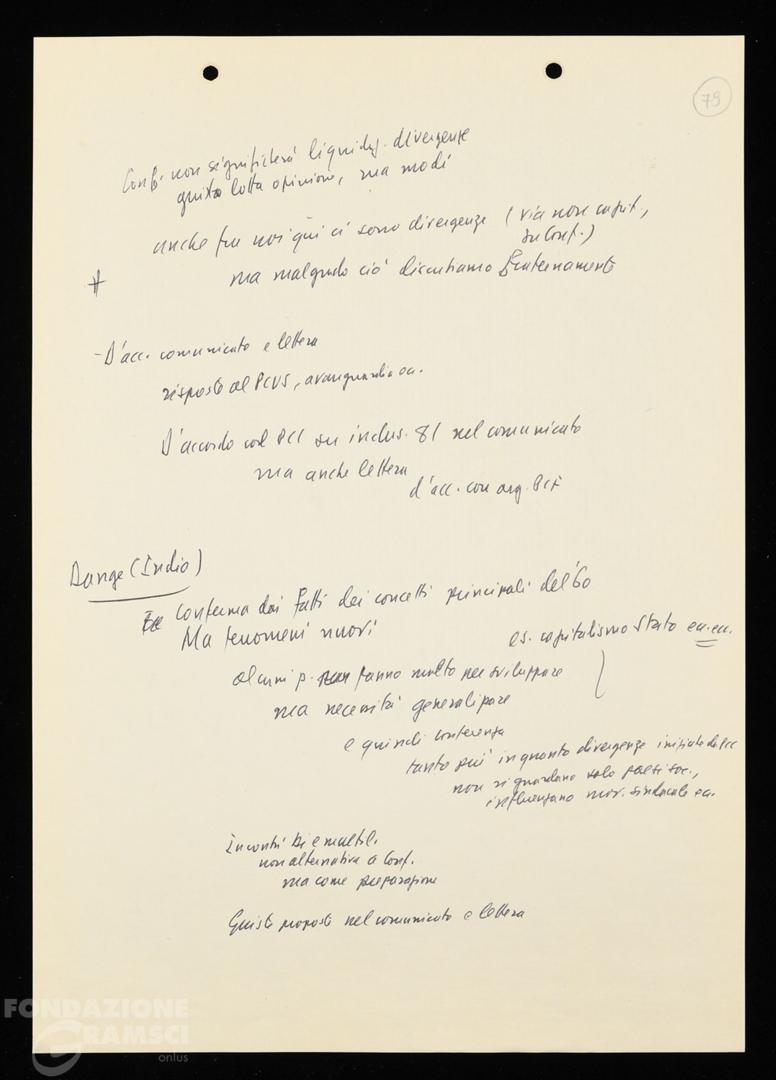 79
Conf. non significherà liquidaz. divergenze
giusta lotta opinione, ma modi
anche fra noi qui ci sono divergenze (via non capit.,
su Conf.)
#
ma malgrado ciò discutiamo fraternamente
- D'acc. comunicato e lettera
risposte al PCUS, avanguardia ec.
D'accordo col PCI su inclus. 81 nel comunicato
ma anche lettera
d'acc. con arg. PCF
Dange (India)
Conferma dai fatti dei concetti principali del '60
Ma fenomeni nuovi
es. capitalismo Stato ec. ec.
alcuni p. fanno molto per sviluppare
ma necessità generalizzare
e quindi conferenza
tanto più in quanto divergenze iniziate da PCC
non riguardano solo paesi soc.,
influenzano mov. sindacale ec.
Incontri bi e multil.
non alternativa a Conf.
ma come preparazione
Giuste proposte nel comunicato e lettera
FONDAZIONE
GRAMSCI
onlus